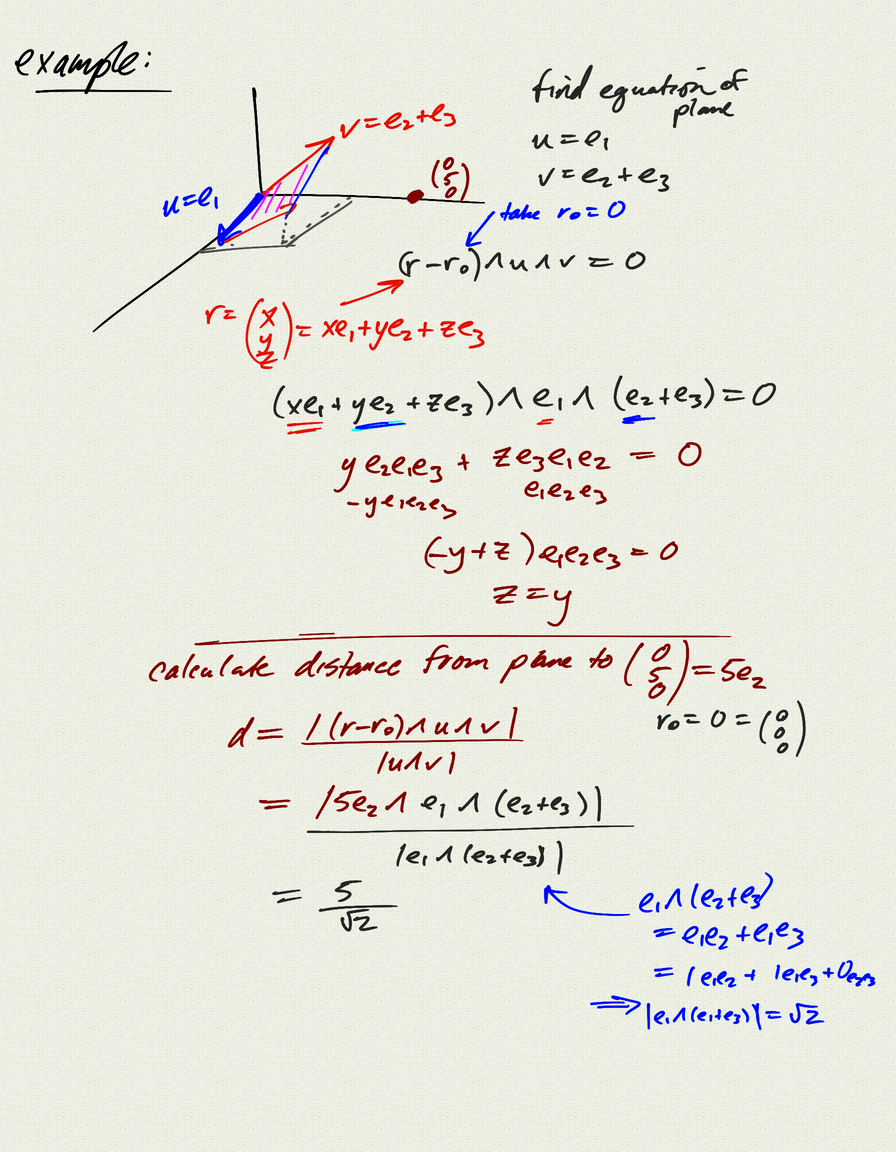 example:
find equation of
plane
u = e₁
v = e₂ + e₃
v = e₂ + e₃
u = e₁
(0 5 0)
take r₀ = 0
(r − r₀) ∧ u ∧ v = 0
r = (x y z) = xe₁ + ye₂ + ze₃
(xe₁ + ye₂ + ze₃) ∧ e₁ ∧ (e₂ + e₃) = 0
y e₂e₁e₃ + z e₃e₁e₂ = 0
−y e₁e₂e₃
e₁e₂e₃
(−y + z) e₁e₂e₃ = 0
z = y
calculate distance from plane to (0 5 0) = 5e₂
r₀ = 0 = (0 0 0)
d = |(r − r₀) ∧ u ∧ v|
|u ∧ v|
= |5e₂ ∧ e₁ ∧ (e₂ + e₃)|
|e₁ ∧ (e₂ + e₃)|
= 5
√2
e₁ ∧ (e₂ + e₃)
= e₁e₂ + e₁e₃
= 1e₁e₂ + 1e₁e₃ + 0e₂e₃
⇒ |e₁ ∧ (e₁ + e₃)| = √2